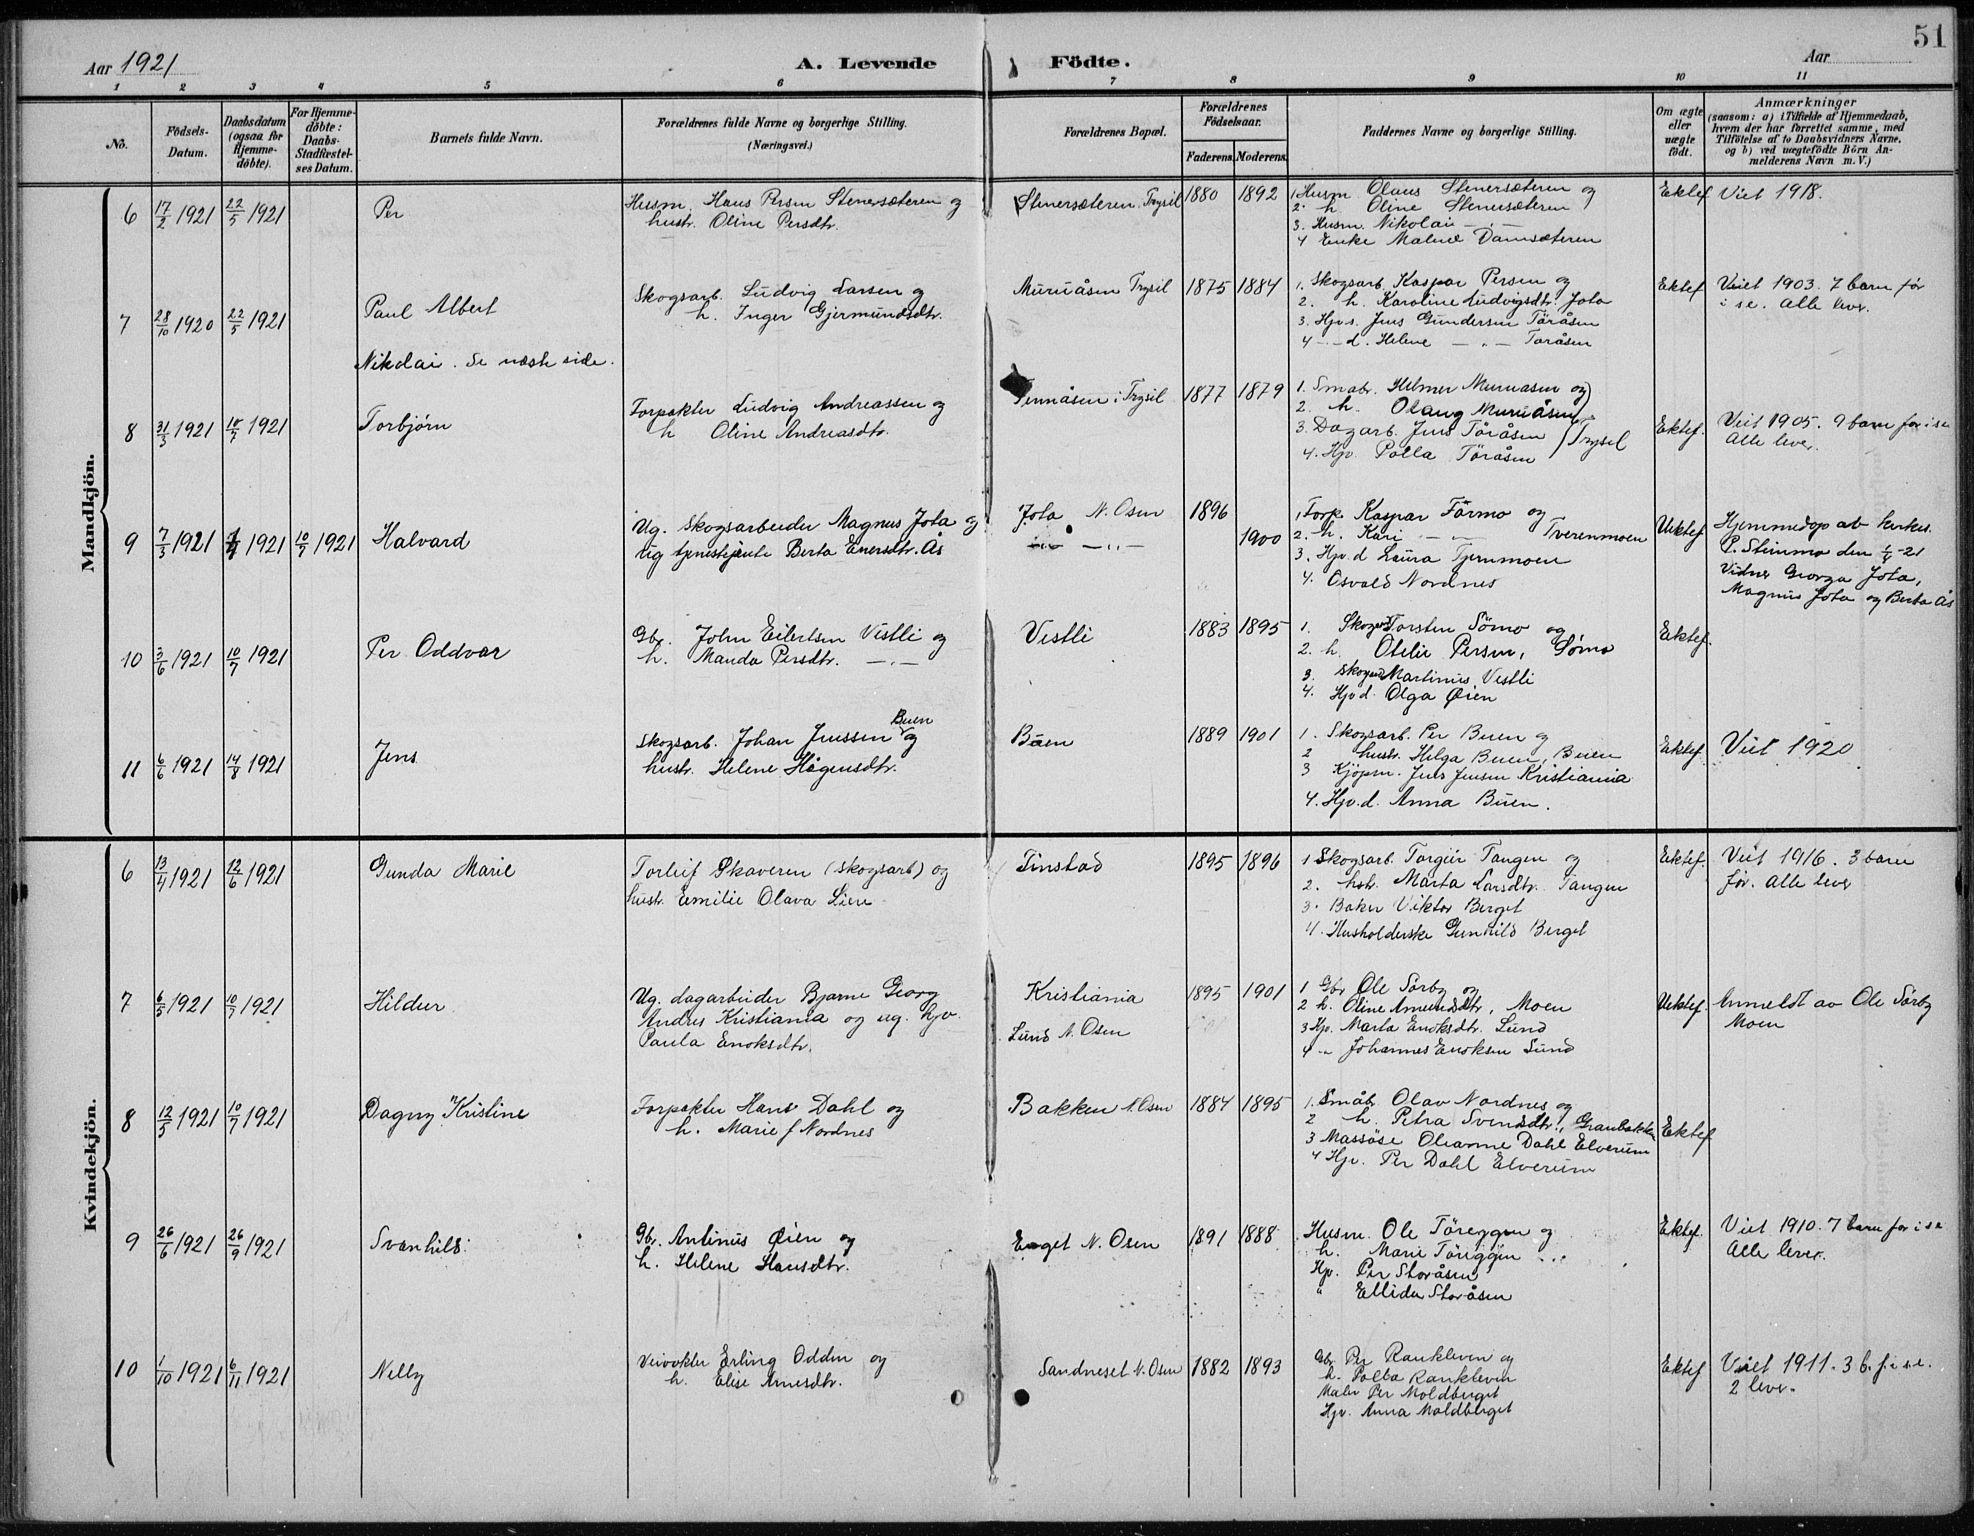 51
Aar 1921
A. Levende Födte.
Aar
1 2 3 4 5 6 7 8 9 10 11
No.
Födsels-Datum.
Daabsdatum (ogsaa for Hjemme-döbte).
For Hjemme-döbte: Daabs-Stadfæstel-ses Datum.
Barnets fulde Navn.
Forældrenes fulde Navne og borgerlige Stilling.
(Næringsvei.)
Forældrenes Bopæl.
Forældrenes Födselsaar.
Faderens. Moderens.
Faddernes Navne og borgerlige Stilling.
Om ægte eller uægte födt.
Anmærkninger
(saasom: a) i Tilfælde af Hjemmedaab, hvem der har forrettet samme, med Tilföielse af to Daabsvidners Navne, og b) ved uægtefödte Börn An-melderens Navn m. V.)
Mandkjön.
6 17/2 1921 22/5 1921 Per
Husm. Hans Persen Stenersæteren og
hustr. Oline Persdtr.
Stenersæteren Trysil 1880 1892
1 Husm Olaus Stenersæteren og
2. h Oline Stenersæteren
3. Husm. Nikolai — " —
4 Enke Malene Damsæteren
Ektef. Viet 1918.
7 28/10 1920 22/5 1921 Paul Albert
Skogsarb. Ludvig Larsen og
h. Inger Gjermundsdtr.
Muruåsen Trysil 1875 1884
1. Skogsarb. Kaspar Persen og
2. h. Karoline Ludvigsdtr. Jota
3. Hjv.s. Jens Gundersen Töråsen
4 — " — d. Helene — " — Toråsen
Ektef Viet 1903. 7 barn før
i se. Alle lever.
Nikolai. Se næste side.
8 31/3 1921 10/7 1921 Torbjørn
Forpakter Ludvig Andreassen og
h Oline Andreasdtr.
Tennåsen i Trysil 1877 1879
1. Småbr. Helmer Muruasen og
2. h. Olaug Muruåsen
3. Dagarb. Jens Töråsen
4. Hjv. Polla Töråsen
Trysil
Ektef. Viet 1905. 9 barn før i se
Alle lever.
9 7/3 1921 1/4 1921 10/7 1921 Halvard
Ug. Skogsarbeider Magnus Jota og
Ug tjenestejente Berta Enersdtr. Ås
Jota N. Osen 1896
— " — — " — 1900
1 Forp. Kaspar Förmo og
2. h. Kari — " — Tverenmoen
3. Hjv. d Laura Tjernmoen
4. Osvald Nordnes
Uektef Hjemmedøp av kirkes.
P. Stenmo den 1/4-21
Vidner Georga Jota,
Magnus Jota og Berta Ås
10 3/6 1921 10/7 1921 Per Oddvar
Gbr. John Eilertsen Vestli og
h. Manda Persdtr. — " —
Vestli 1883 1895
1. Skogsarb Torsten Sömo og
2. h. Otelie Persen, Sømo
3. Skogsarb Martinius Vestli
4. Hjv d. Olga Øien
Ektef.
11 6/6 1921 14/8 1921 Jens
Skogsarb. Johan Jenssen Buen og
hustr. Helene Hågensdtr.
Buen 1889 1901
1. Skogsarb. Per Buen og
2 hustr. Helga Buen, Buen
3 Kjöpm. Jens Jensen Kristiania
4. Hjv. d. Anna Buen.
Ektef. Viet 1920
Kvindekjön.
6 13/4 1921 12/6 1921 Gunda Marie
Torleif Skaveren (skogsarb) og
hustr. Emilie Olava Lien
Finstad 1895 1896
1 Skogsarb. Torgeir Tangen og
2. hstr. Marta Larsdtr. Tangen
3. Baker Viktor Berget
4. Husholderske Gunhild Berget
Ektef. Viet 1916. 3 barn
før. Alle lever
7 6/5 1921 10/7 1921 Hildur
Ug. dagarbeider Bjarne Georg
Andres Kristiania og ug. hjv.
Paula Enoksdtr.
Kristiania
Lund N. Osen
1895 1901
1 Gbr Ole Sörby og
2 h. Oline Amundsdtr, Moen
3 Hjv. Marta Enoksdtr. Lund
4 " Johannes Enoksen Lund
Uektef. Anmeldt av Ole Sörby
Moen
8 12/5 1921 10/7 1921 Dagny Kristine
Forpakter Hans Dahl og
h. Marie f Nordnes
Bakken N. Osen 1884 1895
1. Småbr Olav Nordnes og
2 h. Petra Svendsdtr., Granbakken
3 Massöse Oleanne Dahl Elverum
4 Hjv. Per Dahl Elverum
Ektef.
9 26/6 1921 26/9 1921 Svanhild
Gbr. Antinius Øien og
h. Helene Hansdtr.
Enget N. Osen 1891 1888
Husm Ole Töreggen og
h. Marie Töreggen
Hjv. Per Storåsen
" Ellida Storåsen
Ektef. Viet 1910. 7 barn før i se
Alle lever.
10 1/10 1921 6/11 1921 Nelly
Veivokter Erling Odden og
h. Elise Arnesdtr.
Sandneset N. Osen 1882 1893
Gbr Per Rankleven og
h. Polla Rankleven
Maler Per Moldberget
Hjv. Anna Moldberget
Ektef Viet 1911. 3 b. f. i se.
2 lever.